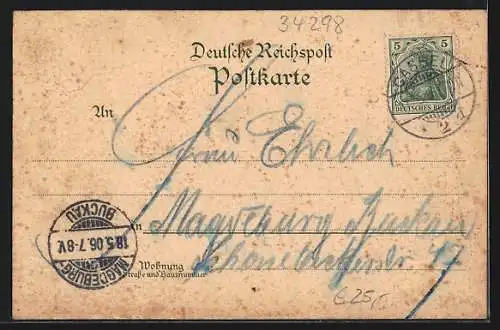 34298
Deutsche Reichspost
Postkarte
5 5
DEUTSCHES REICH
CASSEL
2
An
Frau Ehrlich
in Magdeburg Buckau
Schönebeckerstr 17
Wohnung
(Straße und Hausnummer)
MAGDEBURG-
18.5.06.7-8V.
BUCKAU
€ 25,-